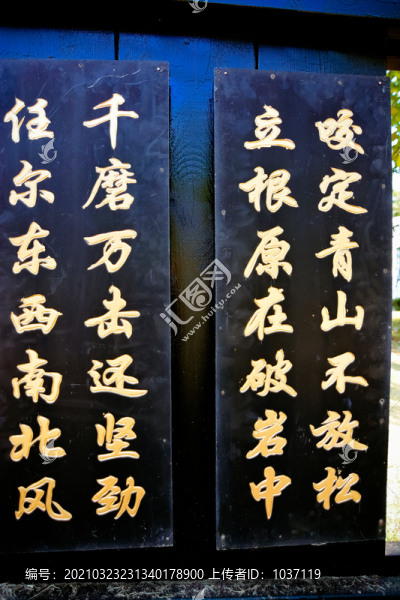 咬定青山不放松
立根原在破岩中
千磨万击还坚劲
任尔东西南北风
编号：20210323231340178900 上传者ID：1037119